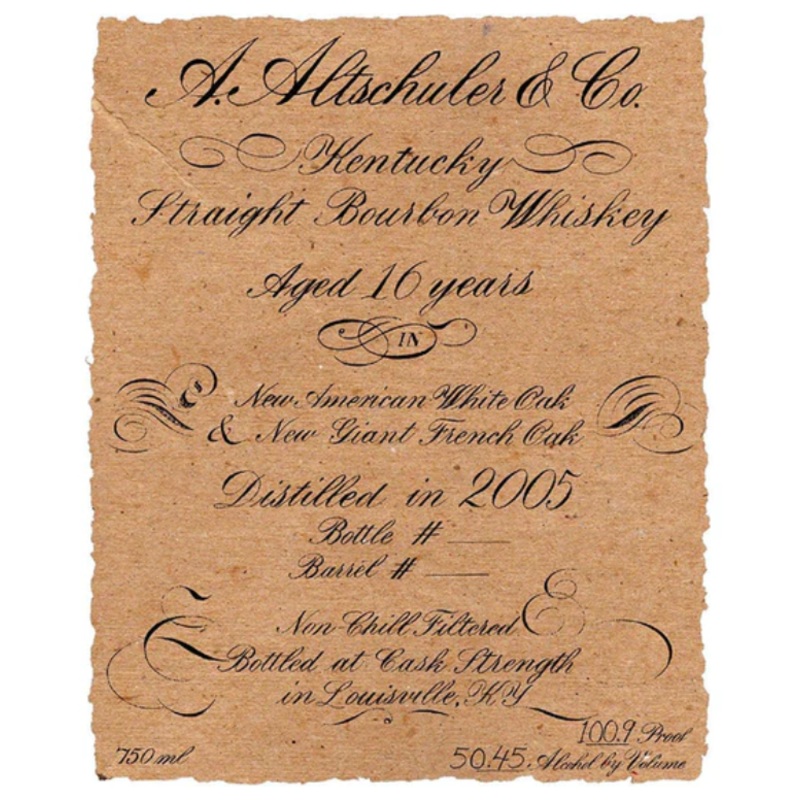 A. Altschuler & Co.
Kentucky
Straight Bourbon Whiskey
Aged 16 years
IN
New American White Oak
& New Giant French Oak
Distilled in 2005
Bottle # ___
Barrel # ___
Non-Chill Filtered
Bottled at Cask Strength
in Louisville, KY
100.9 Proof
750 ml 50.45 Alcohol by Volume